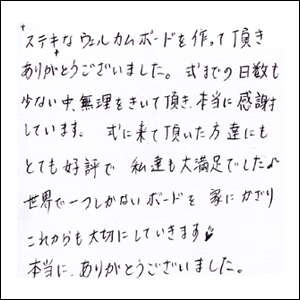 ステキなウェルカムボードを作って頂き
ありがとうございました。式までの日数も
少ない中、無理をきいて頂き、本当に感謝
しています。式に来て頂いた方達にも
とても好評で 私達も大満足でした♪
世界で一つしかないボードを 家にかざり
これからも大切にしていきます♥
本当に、ありがとうございました。